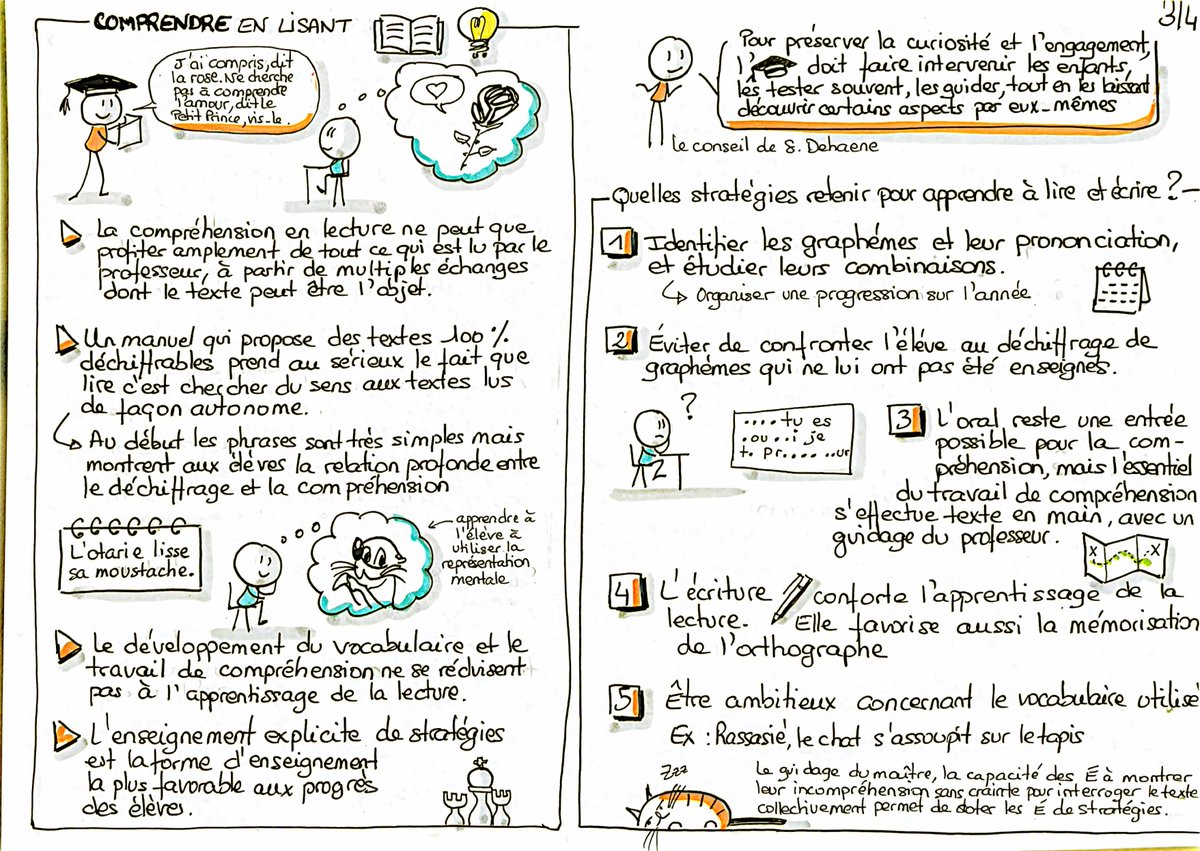 COMPRENDRE EN LISANT
J'ai compris, dit
la rose. Ne cherche
pas à comprendre
l'amour, dit le
Petit Prince, vis-le.
La compréhension en lecture ne peut que
profiter amplement de tout ce qui est lu par le
professeur, à partir de multiples échanges
dont le texte peut être l'objet.
Un manuel qui propose des textes 100%
déchiffrables prend au sérieux le fait que
lire c'est chercher du sens aux textes lus
de façon autonome.
Au début les phrases sont très simples mais
montrent aux élèves la relation profonde entre
le déchiffrage et la compréhension
L'otarie lisse
sa moustache.
apprendre à
l'élève à
utiliser la
représentation
mentale
Le développement du vocabulaire et le
travail de compréhension ne se réduisent
pas à l'apprentissage de la lecture.
L'enseignement explicite de stratégies
est la forme d'enseignement
la plus favorable aux progrès
des élèves.
3/4
Pour préserver la curiosité et l'engagement,
l' doit faire intervenir les enfants,
les tester souvent, les guider, tout en les laissant
découvrir certains aspects par eux-mêmes
le conseil de S. Dehaene
Quelles stratégies retenir pour apprendre à lire et écrire ?
1 Identifier les graphèmes et leur prononciation,
et étudier leurs combinaisons.
Organiser une progression sur l'année
2 Éviter de confronter l'élève au déchiffrage de
graphèmes qui ne lui ont pas été enseignés.
?
.... tu es
.ou..i je
t. pr.....ur
3 L'oral reste une entrée
possible pour la com-
préhension, mais l'essentiel
du travail de compréhension
s'effectue texte en main, avec un
guidage du professeur.
X X
4 L'écriture conforte l'apprentissage de la
lecture. Elle favorise aussi la mémorisation
de l'orthographe
5 Être ambitieux concernant le vocabulaire utilisé
Ex : Rassasié, le chat s'assoupit sur le tapis
Zzz
Le guidage du maître, la capacité des É à montrer
leur incompréhension sans crainte pour interroger le texte
collectivement permet de doter les É de stratégies.